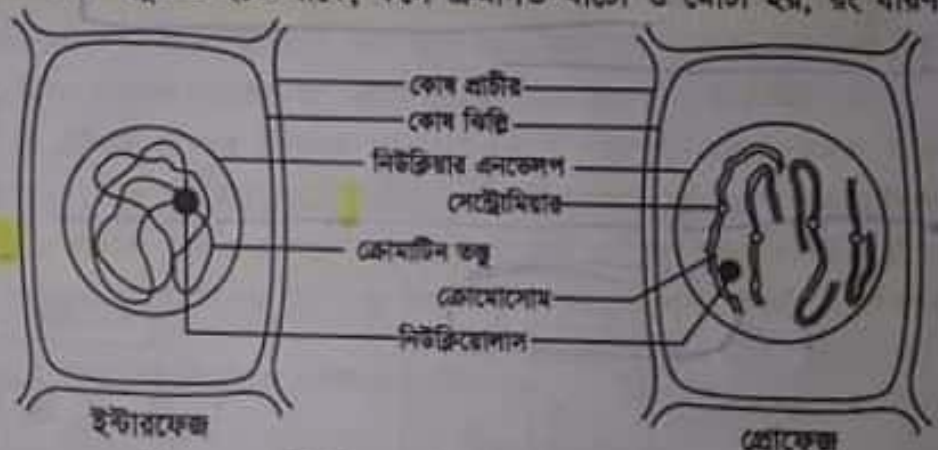 কোষ প্রাচীর
কোষ ঝিল্লি
নিউক্লিয়ার এনভেলপ
সেন্ট্রোমিয়ার
ক্রোমাটিন তন্তু
ক্রোমোসোম
নিউক্লিয়োলাস
ইন্টারফেজ
প্রোফেজ